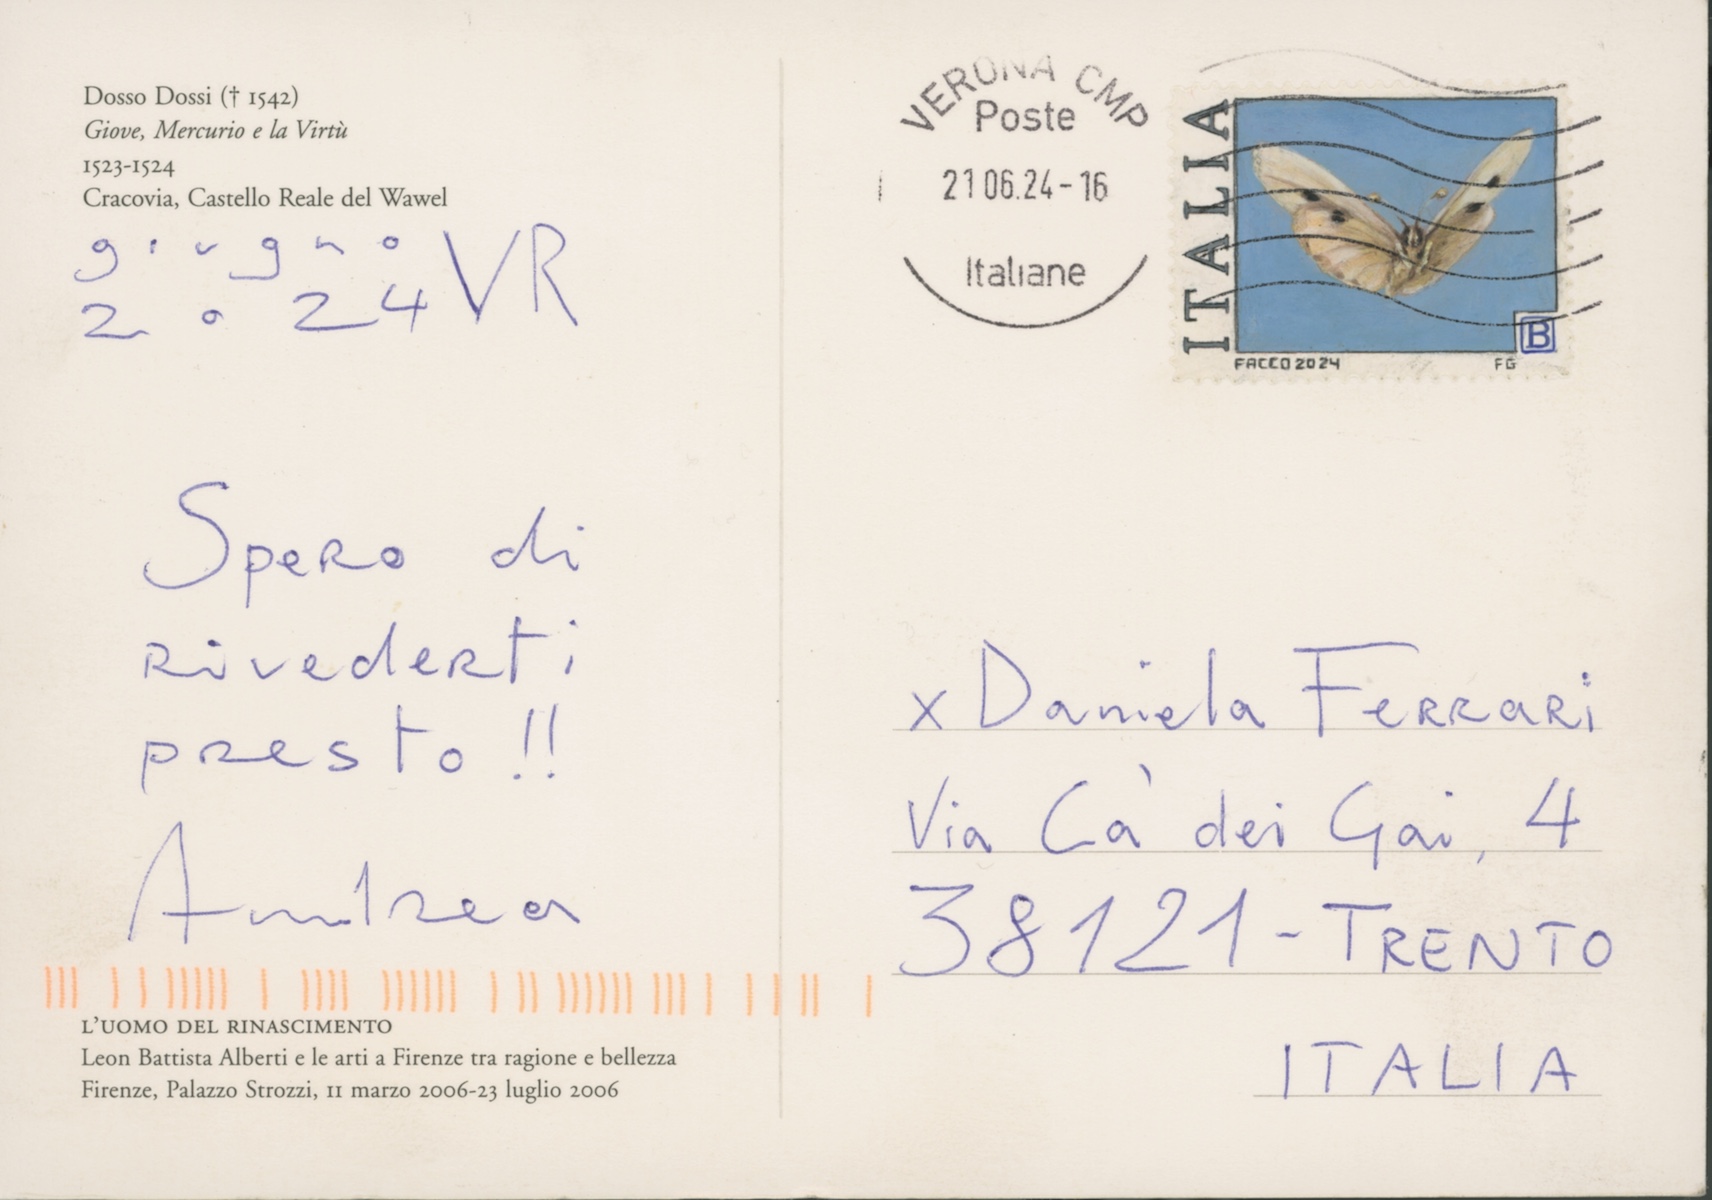 Dosso Dossi († 1542)
Giove, Mercurio e la Virtù
1523-1524
Cracovia, Castello Reale del Wawel
giugno
2024 VR
Spero di
rivederti
presto !!
Andrea
L'UOMO DEL RINASCIMENTO
Leon Battista Alberti e le arti a Firenze tra ragione e bellezza
Firenze, Palazzo Strozzi, 11 marzo 2006-23 luglio 2006
VERONA CMP
Poste
21 06.24-16
Italiane
ITALIA
B
FACCO 2024 FG
x Daniela Ferrari
Via Cà dei Gai, 4
38121 - TRENTO
ITALIA